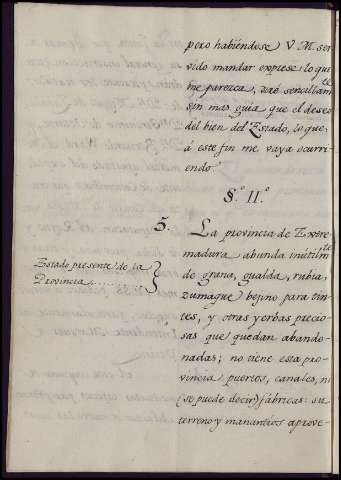 pero habiéndose V. M. ser-
vido mandar exprese lo que
me parezca, diré sencillam.te
sin mas guia que el deseo
del bien del Estado, lo que
á este fin me vaya ocurri-
endo.
§.º II.º
5. La provincia de Extre-
madura abunda inútilm.te
Estado presente de la
Provincia..........
de grana, gualda, rubia,
zumaque, bejino para tin-
tes, y otras yerbas precio-
sas que quedan abando-
nadas; no tiene esta pro-
vincia puertos, canales, ni
(se puede decir) fábricas: su
terreno y manantios aprove-